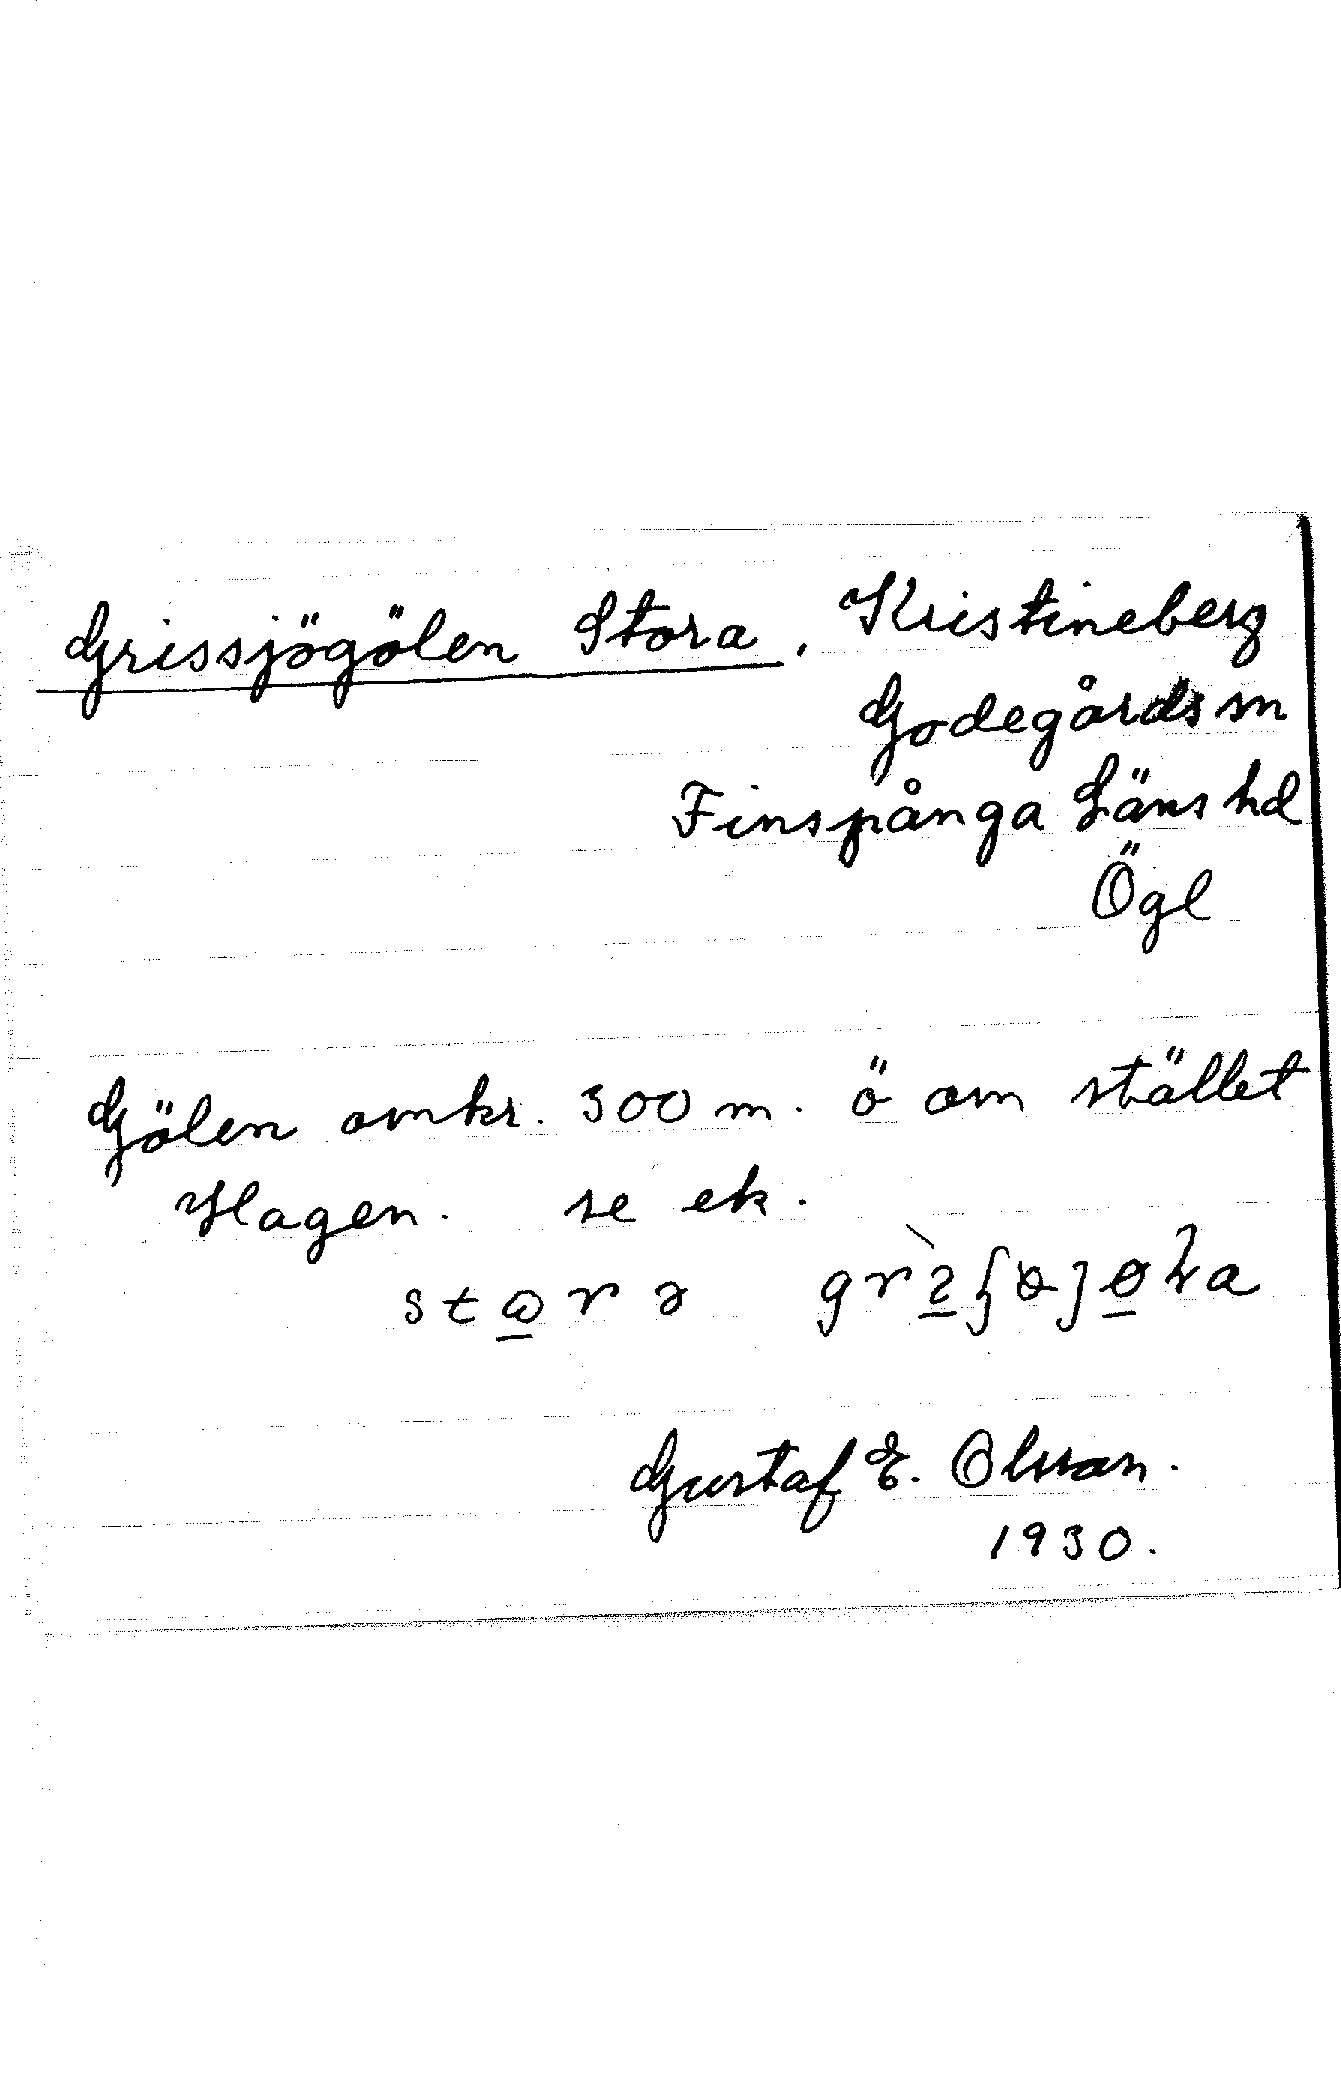 Grissjögölen Stora. Kristineberg
Godegårds sn
Finspånga Läns hd
Ögl
Gölen omkr. 300 m. ö om stället
Hagen. se ek.
Gustaf E. Olsson.
1930.